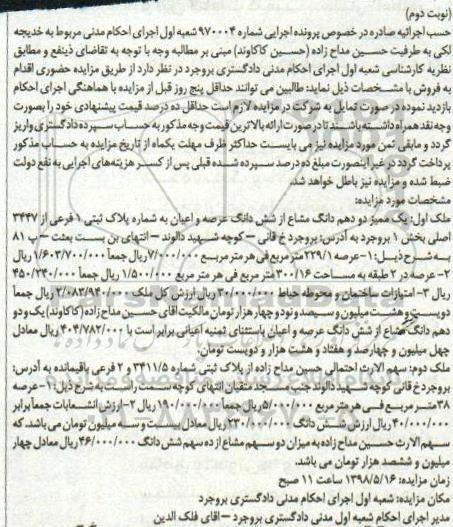 (نوبت دوم)
حسب اجرائیه صادره در خصوص پرونده اجرایی شماره ۹۷۰۰۰۴ شعبه اول اجرای احکام مدنی مربوط به خدیجه
لکی به طرفیت حسین مداح زاده (حسین کاکاوند) مبنی بر مطالبه وجه با توجه به تقاضای ذینفع و مطابق
نظریه کارشناسی شعبه اول اجرای احکام مدنی دادگستری بروجرد در نظر دارد از طریق مزایده حضوری اقدام
به فروش با مشخصات ذیل نماید: طالبین می توانند حداقل پنج روز قبل از مزایده با هماهنگی اجرای احکام
بازدید نموده در صورت تمایل به شرکت در مزایده لازم است حداقل ده درصد قیمت پیشنهادی خود را بصورت
وجه نقد همراه داشته باشند تا در صورت ارائه بالاترین قیمت وجه مذکور به حساب سپرده دادگستری واریز
گردد و مابقی ثمن مورد مزایده نیز می بایست حداکثر ظرف مهلت یکماه از تاریخ مزایده به حساب مذکور
پرداخت گردد در غیر اینصورت مبلغ ده درصد سپرده شده قبلی پس از کسر هزینه‌های اجرایی به نفع دولت
ضبط شده و مزایده نیز باطل خواهد شد.
مشخصات مورد مزایده:
ملک اول: یک ممیز دو دهم دانگ مشاع از شش دانگ عرصه و اعیان به شماره پلاک ثبتی ۱ فرعی از ۳۴۴۷
اصلی بخش ۱ بروجرد به آدرس: بروجرد خ قانی – کوچه شهید دالوند – انتهای بن بست بعثت – پ ۸۱
به شرح ذیل: ۱- عرصه ۲۲۹/۱ متر مربع فی هر متر مربع ۷/۰۰۰/۰۰۰ ریال جمعاً ۱/۶۰۳/۷۰۰/۰۰۰ ریال
۲- عرصه در ۲ طبقه به مساحت ۳۰۰/۱۶ متر مربع فی هر متر مربع ۱/۵۰۰/۰۰۰ ریال جمعاً ۴۵۰/۲۴۰/۰۰۰
ریال ۳- امتیازات ساختمان و محوطه حیاط ۳۰/۰۰۰/۰۰۰ ریال ارزش کل ملک ۲/۰۸۳/۹۴۰/۰۰۰ ریال جمعاً
دویست و هشت میلیون و سیصد و نود و چهار هزار تومان مالکیت آقای حسین مداح زاده (کاکاوند) یک و دو
دهم دانگ مشاع از شش دانگ عرصه و اعیان باستثنای ثمنیه اعیانی برابر است با ۴۰۴/۷۸۲/۰۰۰ ریال معادل
چهل میلیون و چهارصد و هفتاد و هشت هزار و دویست تومان.
ملک دوم: سهم الارث احتمالی حسین مداح زاده از پلاک ثبتی شماره ۳۴۱۱/۵ و ۲ فرعی باقیمانده به آدرس:
بروجرد خ قانی کوچه شهید دالوند جنب مسجد متقیان انتهای کوچه سمت راست به شرح ذیل: ۱- عرصه
۳۸ متر مربع فی هر متر مربع ۵/۰۰۰/۰۰۰ ریال جمعاً ۱۹۰/۰۰۰/۰۰۰ ریال ۲- ارزش انشعابات جمعاً برابر
۴۰/۰۰۰/۰۰۰ ریال ارزش شش دانگ ۲۳۰/۰۰۰/۰۰۰ ریال معادل بیست و سه میلیون تومان می باشد. که
سهم الارث حسین مداح زاده به میزان دو سهم مشاع از ده سهم شش دانگ ۴۶/۰۰۰/۰۰۰ ریال معادل چهار
میلیون و ششصد هزار تومان می باشد.
زمان مزایده: ۱۳۹۸/۵/۱۶ ساعت ۱۱ صبح
مکان مزایده: شعبه اول اجرای احکام مدنی دادگستری بروجرد
مدیر اجرای احکام شعبه اول مدنی دادگستری بروجرد – اقای فلک الدین